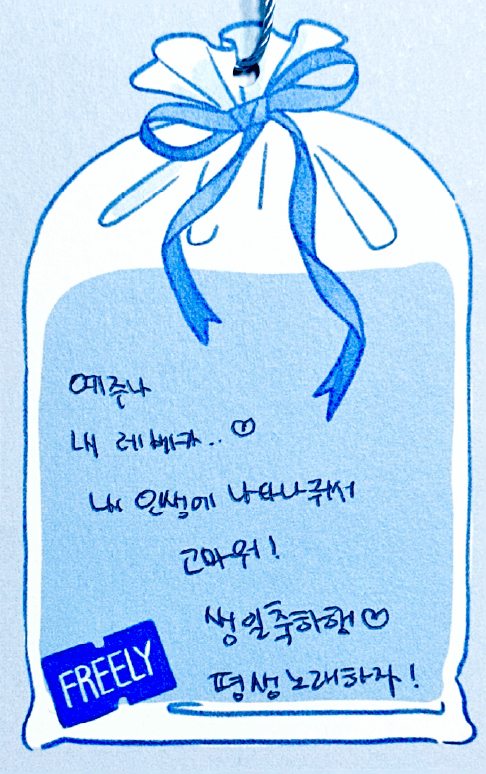 예준아
내 레베카.. ♡
내 인생에 나타나줘서
고마워!
생일축하행♡
평생노래하자!
FREELY